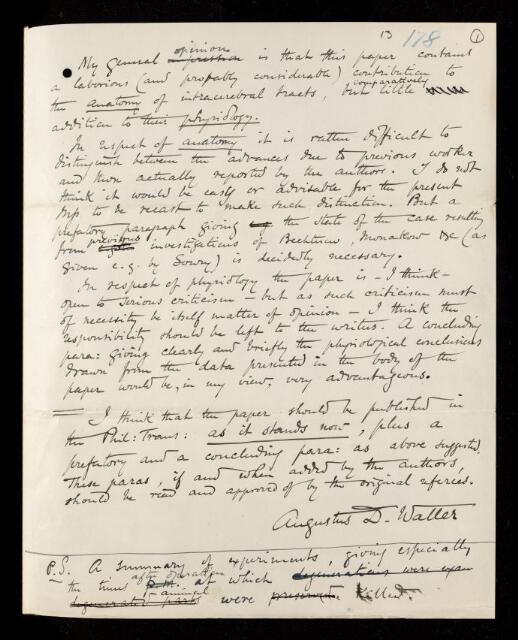 13 178 1
My general opinion is that this paper contains
a laborious (and probably considerable) contribution to
the anatomy of intracerebral tracts, but comparatively little
addition to their physiology.
In respect of anatomy it is rather difficult to
distinguish between the advances due to previous workers
and those actually reported by the authors. I do not
think it would be easy or advisable for the present
MS to be recast to make such distinction. But a
prefatory paragraph giving the state of the case resulting
from previous investigations of Bechterew, Monakow &c (as
given e.g. by Soury) is decidedly necessary.
In respect of physiology the paper is - I think -
open to serious criticism - but as such criticism must
of necessity be itself matter of opinion - I think the
responsibility should be left to the writers. A concluding
para: giving clearly and briefly the physiological conclusions
drawn from the data presented in the body of the
paper would be, in my view, very advantageous.
I think that the paper should be published in
the Phil: Trans: as it stands now, plus a
prefatory and a concluding para: as above suggested.
These paras, if and when added by the authors,
should be read and approved of by the original referees.
Augustus D. Waller
P.S. A summary of experiments, giving especially
the times after operation at which degenerations were exam
degenerated parts animals were killed.